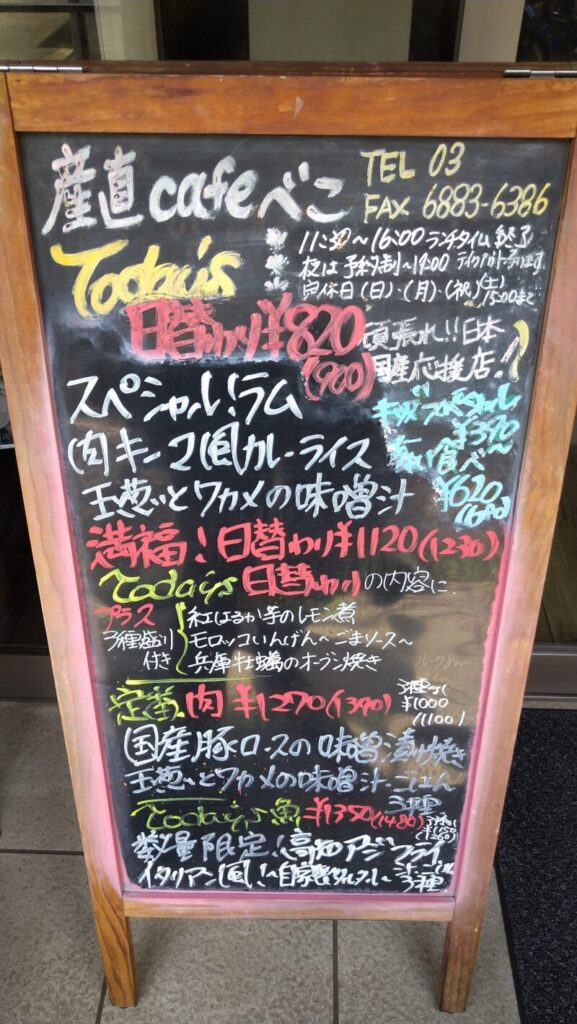 産直cafeべこ
TEL 03
FAX 6883-6386
Today's
11:30〜16:00 ランチタイム 終了
夜は予約制〜19:00 テイクアウト
定休日(日)・(月)・(祝)(土)15:00まで
日替わり¥820
(900)
頑張れ!!日本
国産応援店!
スペシャル!ラム
肉キーマ風カレーライス
玉葱とワカメの味噌汁
キッズスペシャル
¥390
¥620
満福!日替わり¥1120(1230)
Today's 日替わりの内容に
プラス
3種盛り
付き
紅はるか芋のレモン煮
モロッコいんげん〜ごまソース〜
兵庫牡蠣のオーブン焼き
定番 肉 ¥1270(1390)
3種なし
¥1000
(1100)
国産豚ロースの味噌漬け焼き
玉葱とワカメの味噌汁 ごはん
3種
Today's 魚 ¥1350(1480)
3種なし
¥1150
(1260)
数量限定!高知アジフライ
イタリアン風!〜自家製タルタル〜
3種